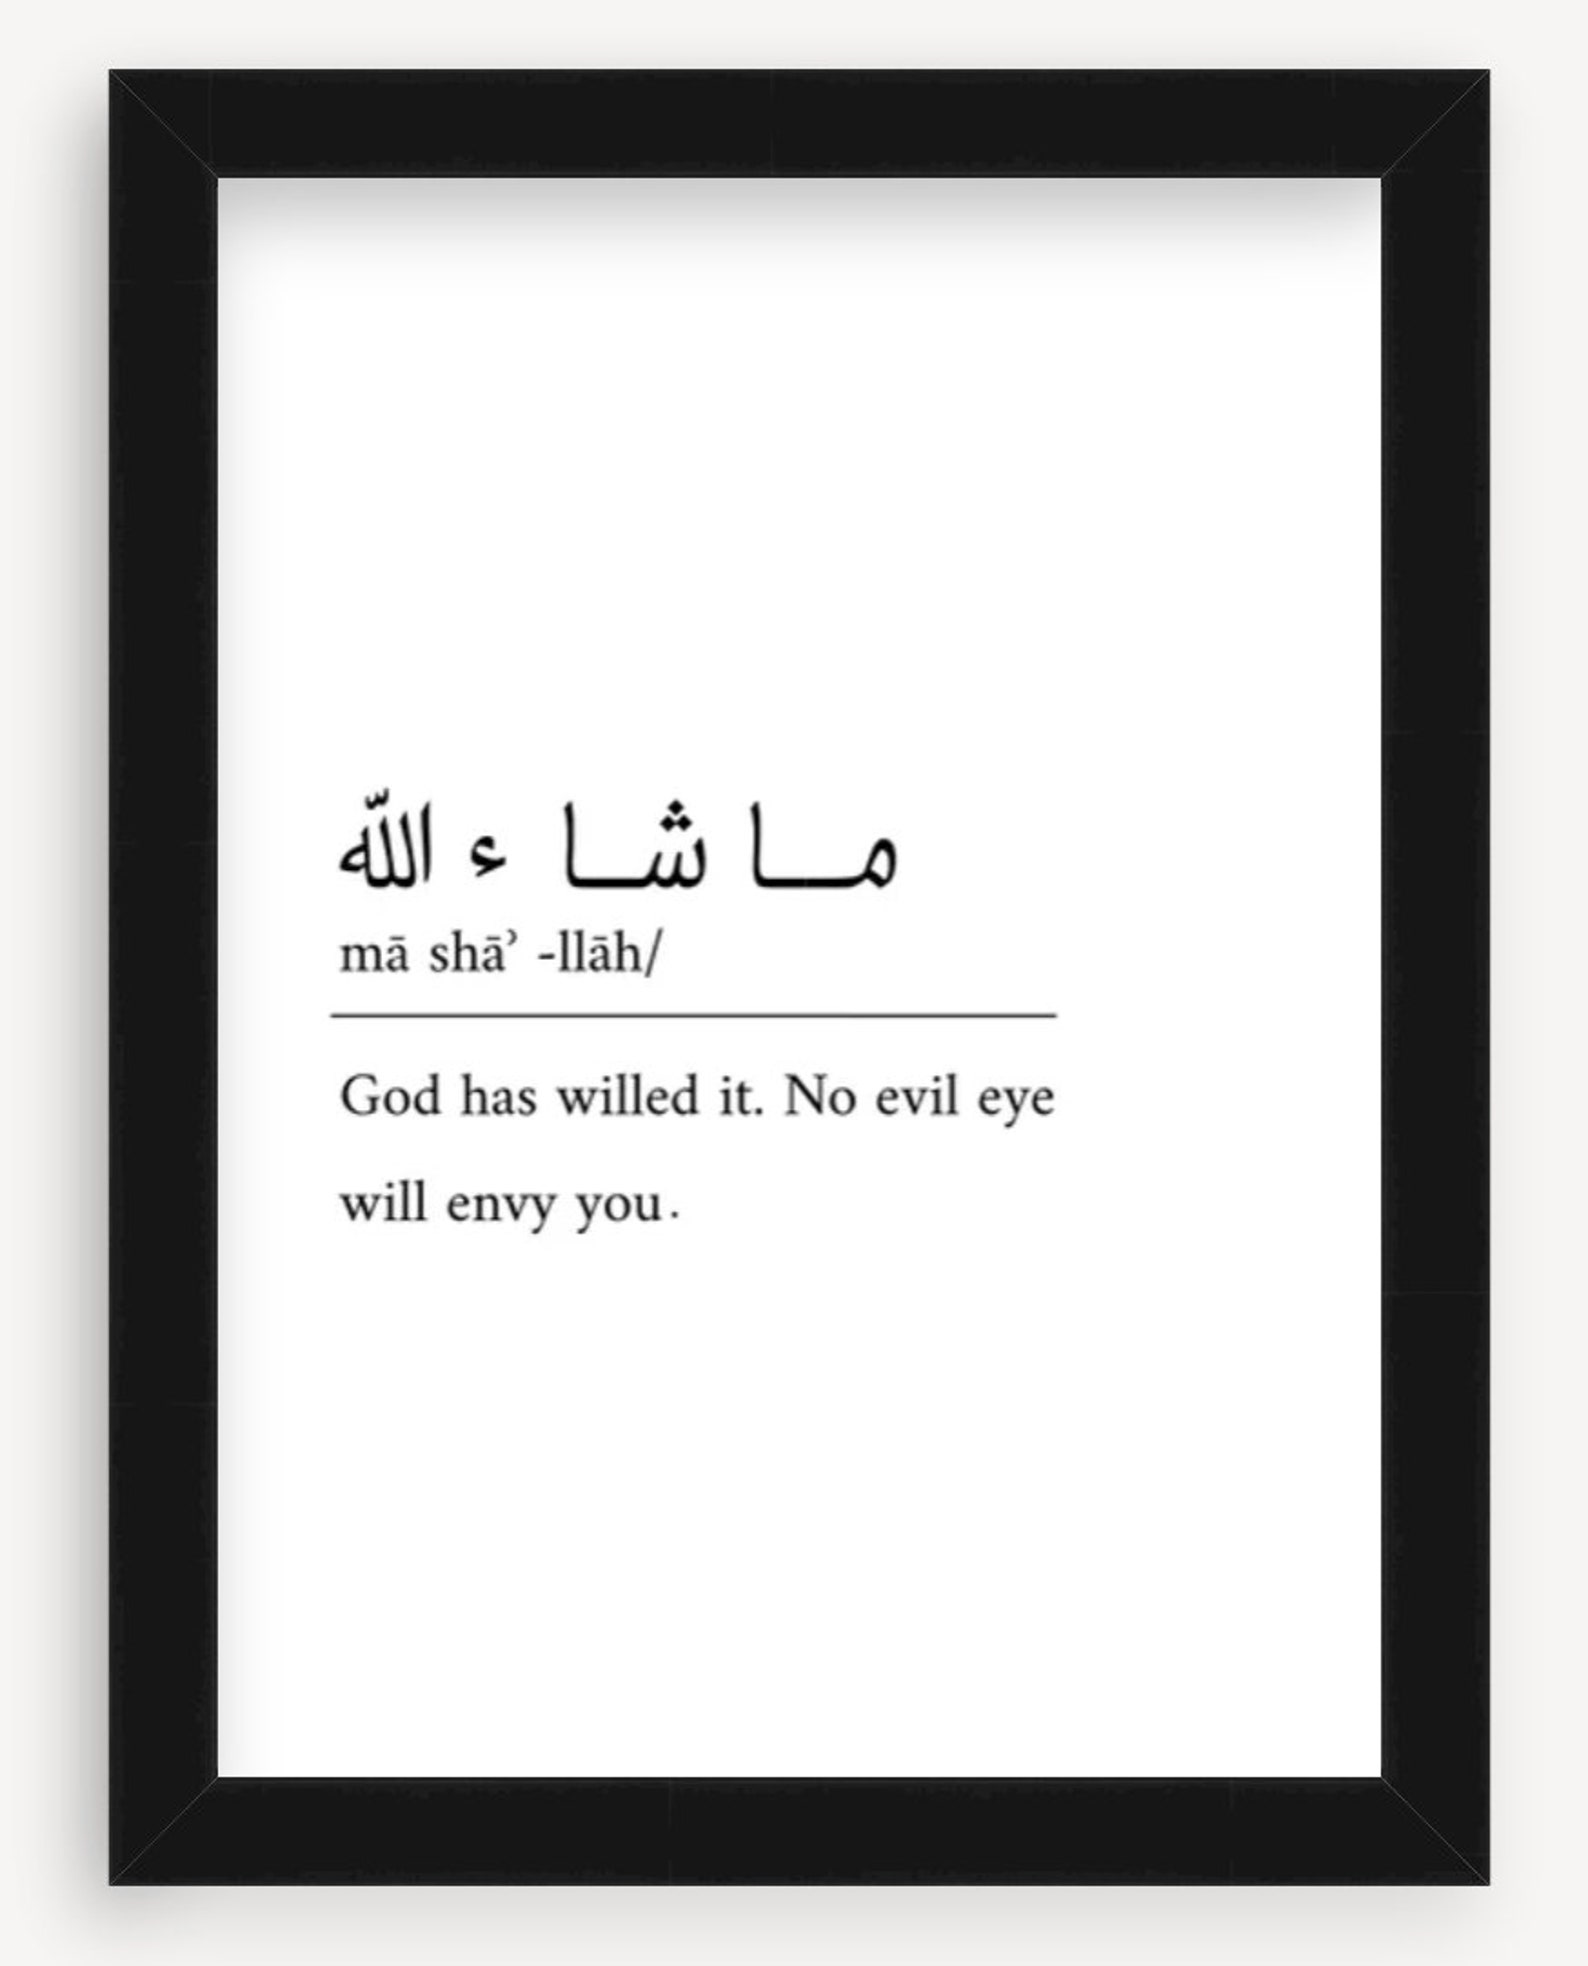 ما شا ء الله
mā shāʾ -llāh/
God has willed it. No evil eye
will envy you.